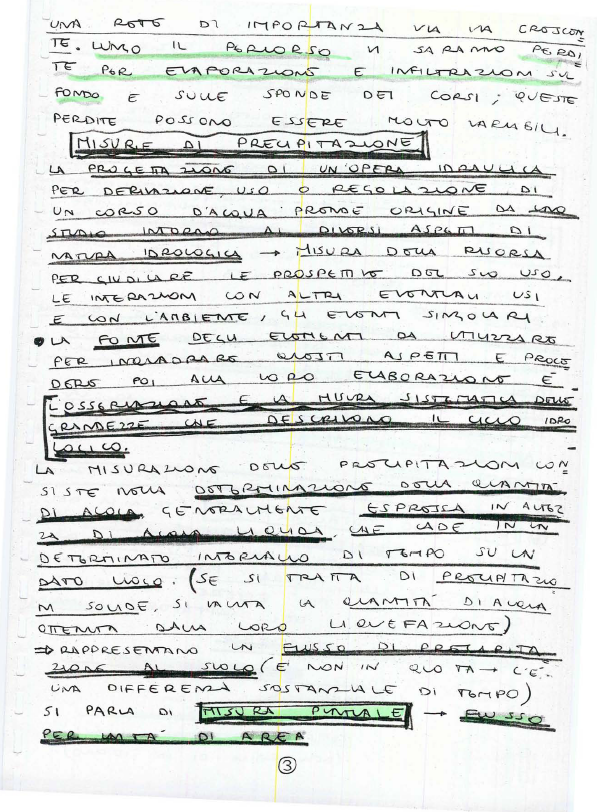 UNA RETE DI IMPORTANZA VIA VIA CRESCEN
TE. LUNGO IL PERCORSO VI SARANNO PERDI
TE PER EVAPORAZIONE E INFILTRAZIONI SUL
FONDO E SULLE SPONDE DEI CORSI; QUESTE
PERDITE POSSONO ESSERE MOLTO VARIABILI.
MISURE DI PRECIPITAZIONE
LA PROGETTAZIONE DI UN'OPERA IDRAULICA
PER DERIVAZIONE, USO O REGOLAZIONE DI
UN CORSO D'ACQUA PRENDE ORIGINE DA UNO
STUDIO INTORNO AI DIVERSI ASPETTI DI
NATURA IDROLOGICA → MISURA DELLA RISORSA
PER GIUDICARE LE PROSPETTIVE DEL SUO USO,
LE INTERAZIONI CON ALTRI EVENTUALI USI
E CON L'AMBIENTE, GLI EVENTI SINGOLARI.
• LA FONTE DEGLI ELEMENTI DA UTILIZZARE
PER INQUADRARE QUESTI ASPETTI E PROCE
DERE POI ALLA LORO ELABORAZIONE È
L'OSSERVAZIONE E LA MISURA SISTEMATICA DELLE
GRANDEZZE CHE DESCRIVONO IL CICLO IDRO
LOGICO.
LA MISURAZIONE DELLE PRECIPITAZIONI CON
SISTE NELLA DETERMINAZIONE DELLA QUANTITÀ
DI ACQUA, GENERALMENTE ESPRESSA IN ALTEZ
ZA DI ACQUA LIQUIDA, CHE CADE IN UN
DETERMINATO INTERVALLO DI TEMPO SU UN
DATO LUOGO. (SE SI TRATTA DI PRECIPITAZIO
NI SOLIDE, SI VALUTA LA QUANTITÀ DI ACQUA
OTTENUTA DALLA LORO LIQUEFAZIONE)
⇒ RAPPRESENTANO UN FLUSSO DI PRECIPITA
ZIONE AL SUOLO (E NON IN QUOTA → C'È
UNA DIFFERENZA SOSTANZIALE DI TEMPO)
SI PARLA DI MISURA PUNTUALE → FLUSSO
PER UNITÀ DI AREA
3